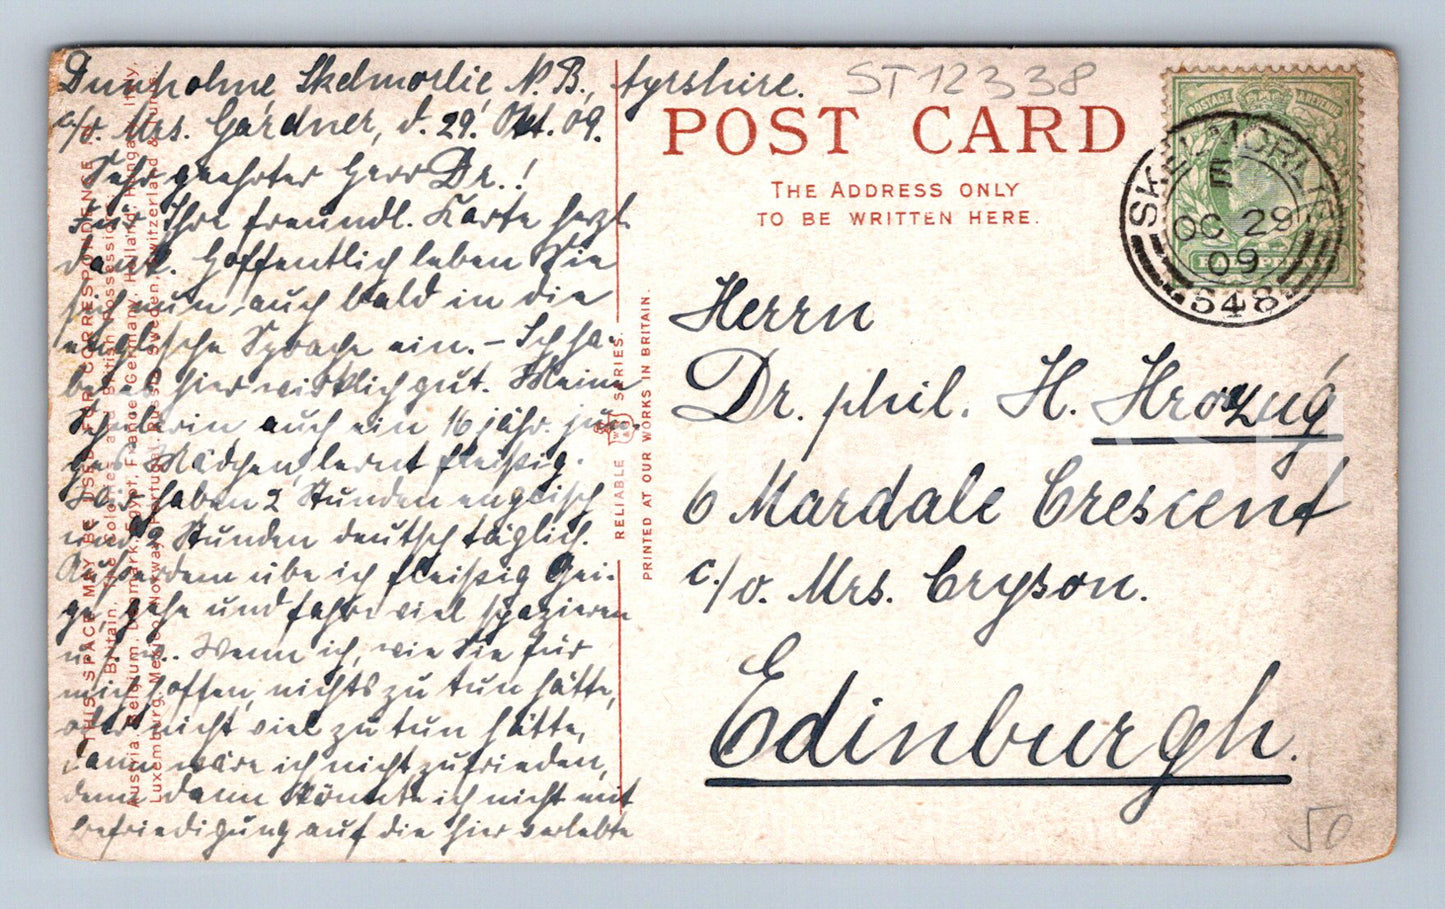 Dunholme, Skelmorlie, N. B., Ayrshire.
c/o. Mrs. Gardner, d. 29. Okt. 09.
Sehr geehrter Herr Dr.!
Für Ihre freundl. Karte herzl.
Dank. Hoffentlich leben Sie
sich nun auch bald in die
englische Sprache ein. – Ich ha-
be es hier wirklich gut. Meine
Schülerin, auch ein 16 jähr. jun-
ges Mädchen, lernt fleißig.
Wir haben 2 Stunden englisch
und 2 Stunden deutsch täglich.
Außerdem übe ich fleißig Gei-
ge, gehe und fahre viel spazieren
u.s.w. Wenn ich, wie Sie für
mich hoffen, nichts zu tun hätte,
oder nicht viel zu tun hätte,
dann wäre ich nicht zufrieden,
denn dann könnte ich nicht mit
Befriedigung auf die hier verlebte
THIS SPACE MAY BE USED FOR CORRESPONDENCE TO
Britain, The Colonies and British Possessions,
Austria, Belgium, Denmark, Egypt, France, Germany, Holland, Hungary, Italy,
Luxemburg, Mexico, Norway, Portugal, Russia, Sweden, Switzerland &
RELIABLE
W R & S
SERIES.
PRINTED AT OUR WORKS IN BRITAIN.
ST12338
POST CARD
THE ADDRESS ONLY
TO BE WRITTEN HERE.
POSTAGE & REVENUE
HALFPENNY
SKELMORLIE
E
OC 29
09
548
Herrn
Dr. phil. H.
6 Mardale Crescent
c./o. Mrs. Cryson.
Edinburgh.
50